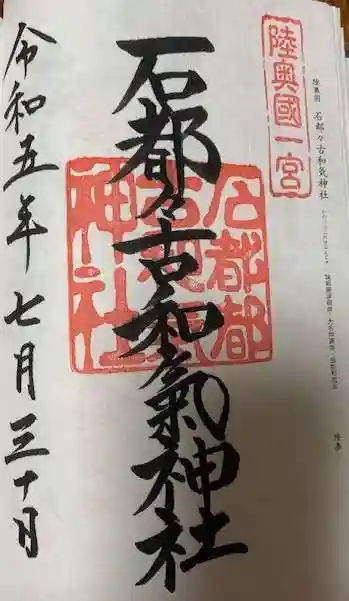 陸奥國一宮
陸奥国 石都々古和気神社
石都々古和氣神社
石都都
古和氣
神社
令和五年七月三十日